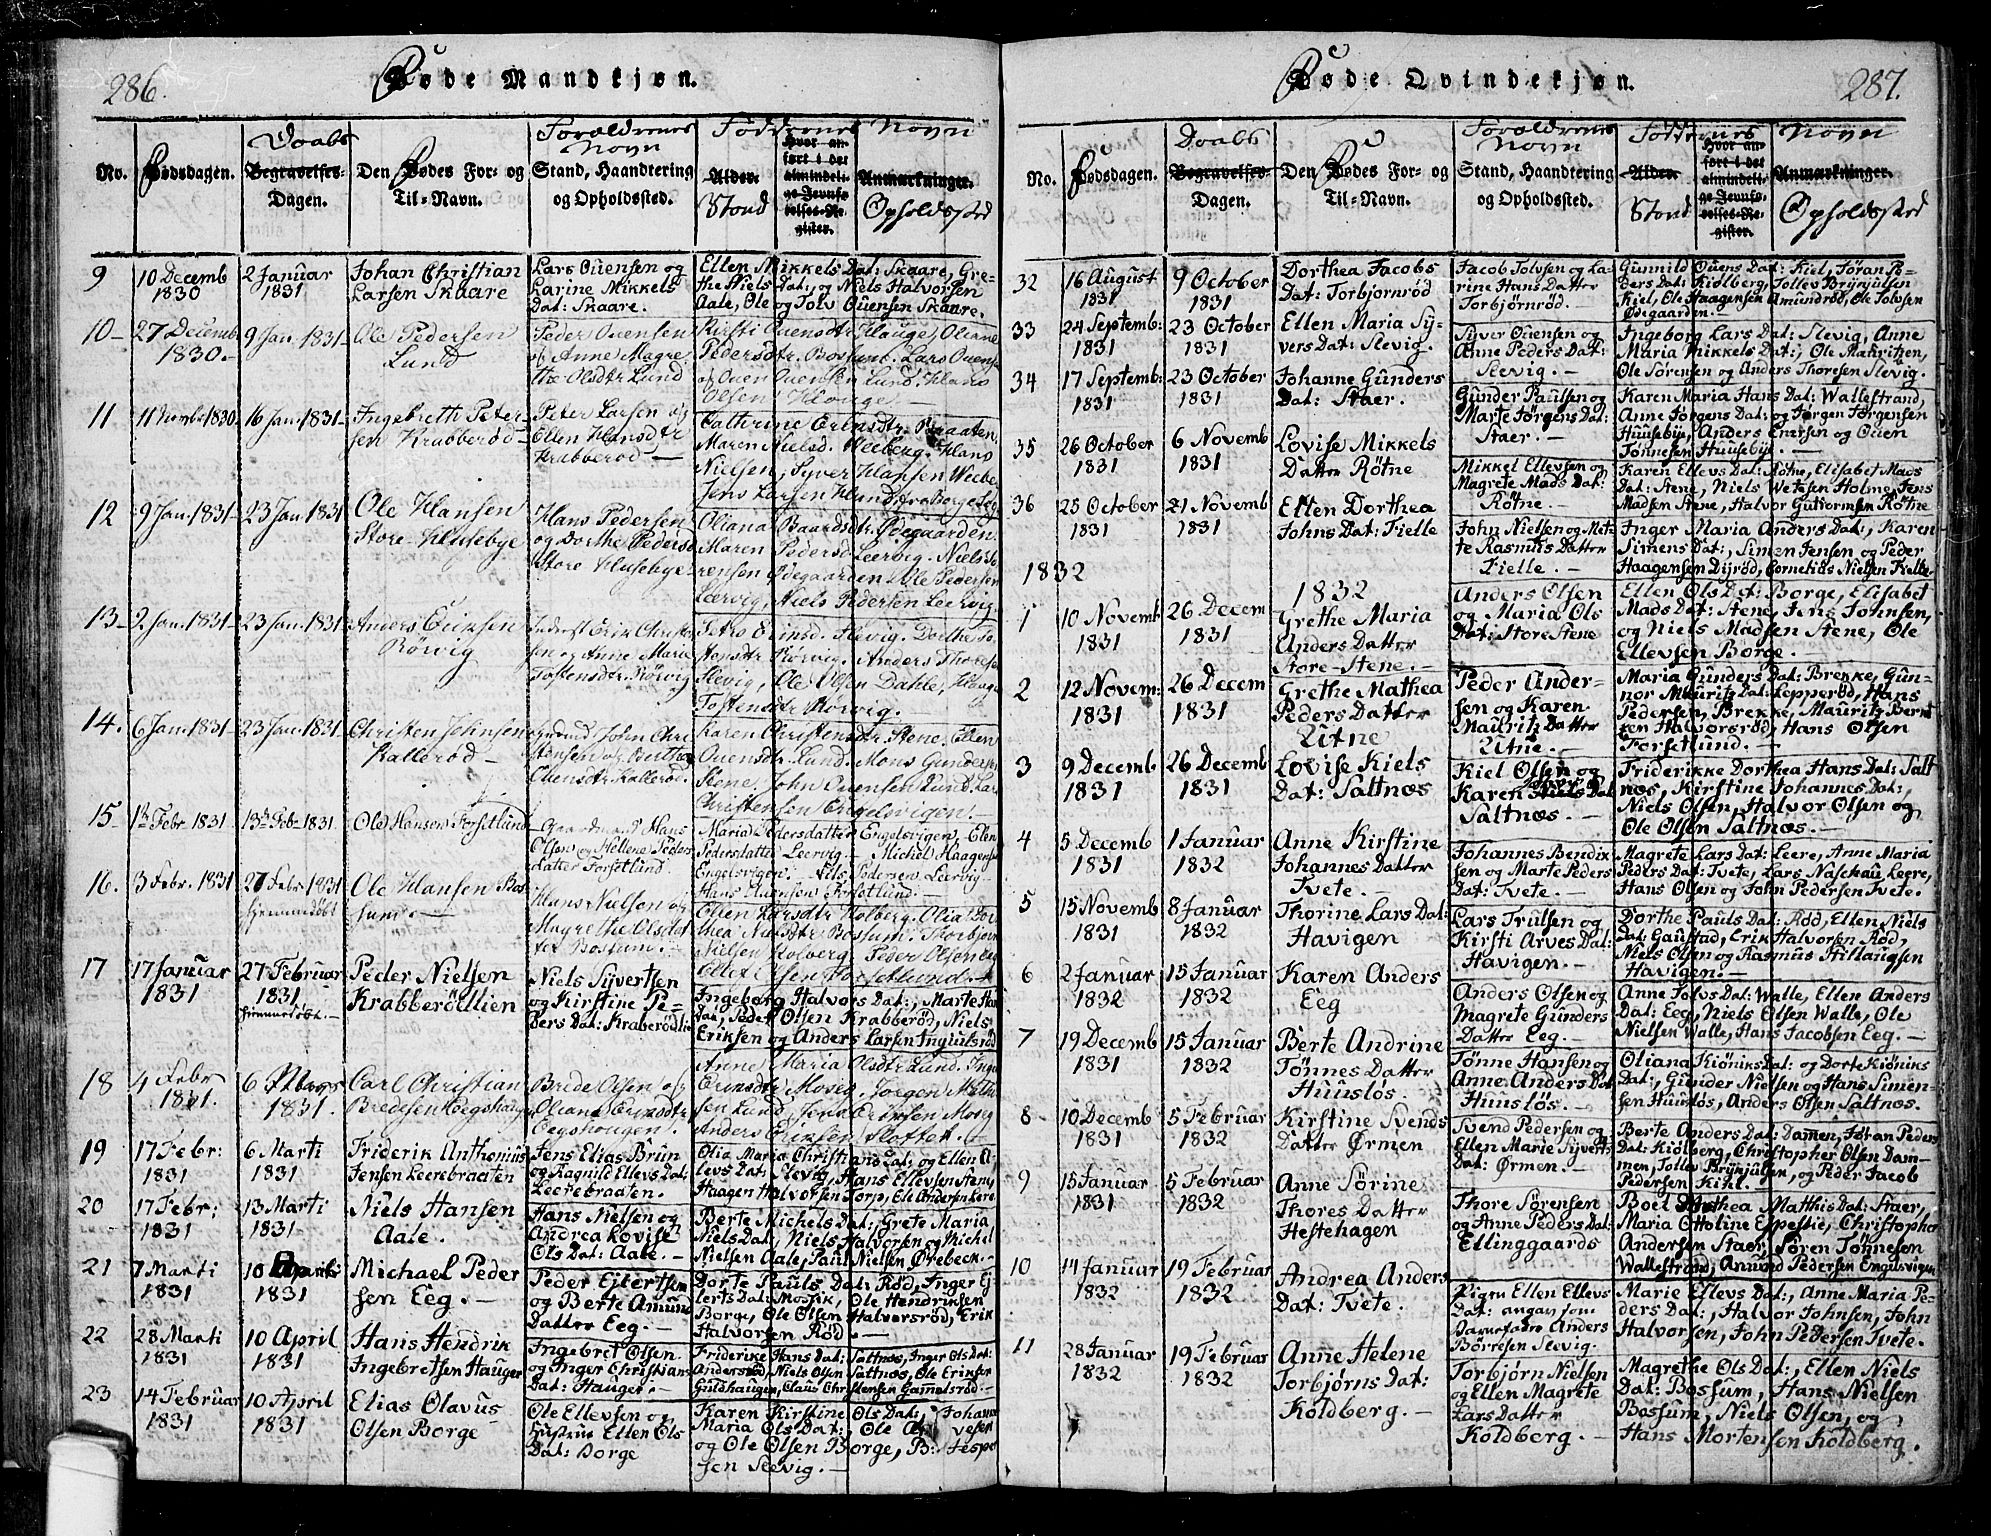 286.
Døde Mandkjøn.
No.
Fødsdagen.
Daabs
Begravelses-
Dagen.
Den Fødes For- og
Til-Navn.
Forældrenes
Navn
Stand, Haandtering
og Opholdssted.
Faddernes Navn
Alder.
Stand
Hvor an-
ført i det
almindeli-
ge Jevnfø-
relses-Re-
gister.
Anmærkninger.
Opholdssted
9
10 Decemb
1830
2 Januar
1831
Johan Christian
Larsen Skaare
Lars Ouensen og
Larine Mikkels
Dat: Skaare.
Ellen Mikkels Dat: Skaare, Gre-
the Niels Dat; og Niels Halvorsen
Aale, Ole og Tolv Ouensen Skaare.
10
27 Decemb
1830.
9 Jan. 1831
Ole Pedersen
Lund
Peder Ouensen
og Anne Magre
the Olsdtr Lund
Kirsti Ouensdtr Hauge, Oliane
Pedersdtr. Bossund. Lars Ouens
og Ouen Ouensen Lund. Hans
Olsen Houge.
11
11 Novmb 1830
16 Jan. 1831
Ingebreth Peter-
sen Krabberød
Peter Larsen og
Ellen Hansdtr
Krabberød
Nielsen, Syver Hansen
12
9 Jan. 1831
23 Jan. 1831
Ole Hansen
Store-Husebye
Hans Pedersen
og Dorthe Pedersd
Store Husebye
Oliana Baardsdtr. Ødegaarden.
Maren Pedersd Leervig. Niels So-
rensen Ødegaarden, Ole Pedersen
Leervig, Niels Pedersen Leervig.
13
2 Jan. 1831
23 Jan. 1831
Anders Eriksen
Rørvig
Erik Christ
sen og Anne Marie
Tostensdtr. Rørvig
Slevig, Ole Olsen Dahle,
Tostensdtr Rørvig.
14.
6 Jan. 1831
23 Jan. 1831
Christen Johnsen
Kallerød
John Chri
stensen og Berthe
Ellensdtr Kallerød.
Karen Christensdtr. Stene. Ellen
Ouensdtr. Lund. Mons Gunders
Stene, John Ouensen Lund. Lars
Christensen Engelsvigen.
15
1te Febr. 1831
13de Feb. 1831
Ole Hansen Forsetlund
Gaardmand Hans
Olsen og Hellene Peders
datter Forsetlund
Maria Pedersdatter Engelsvigen. Elen
Pedersdatter Leervig. Michel Haagens
Engelsvigen. Nils Pedersen Leervig.
Hans Hansen Forsetlund.
16.
3 Febr. 1831
27 Febr 1831
hjemmedøbt
Ole Hansen Bos
sum
Hans Nielsen og
Magrethe Olsdat
ter Bossum.
Ellen Larsdtr Kolberg. Olia Dor
thea Nielsdtr Bossum. Thorbjørn
Nielsen Kolberg. Peder Olsen
17
17 Januar
1831
27 Februar
1831
hjemmedøbt.
Peder Nielsen
Krabberödlien
Niels Syvertsen
og Kirstine Pe-
ders Dat: Kraberödlie
Ingeborg Halvors Dat:, Marte Han
Dat, Peder Olsen Krabberød, Niels
Eriksen og Anders Larsen Ingiulsröd
18
4 Febr
1831.
6
1831.
Carl Christian
Bredesen Eegshougen
Brede Olsen og
Oliane Evensdtr
Eegshougen.
Anne Maria Olsdtr. Lund, Inge
Evensdtr Moseg, Jörgen
sen Lund, Jens Evensen Mosig
Anders Eriksen Slottet.
19
17 Febr:
1831
6 Marti
1831
Friderik Anthonius
Jensen Leerebraaten
Jens Elias Brun
og Ragnild Ellevs Dat:
Leerebraaten.
Olia Maria Christians Dat; og Ellen El
levs Dat: Slevig, Hans Ellevsen Stene,
Haagen Halvorsen Torp, Ole Andersen Lere
20
17 Febr:
1831
13 Marti
1831
Niels Hansen
Aale.
Hans Nielsen og
Andrea Lovise
Ols Dat: Aale.
Berte Michels Dat:, Grete Maria
Niels Dat:, Niels Halvorsen og Michel
Nielsen Aale, Paul Nielsen Ørebeck.
21
7 Marti
1831
10 Aprili
1831
Michael Peder
sen Eeg.
Peder Ejlertsen
og Berte Amund
Datter Eeg.
Dorte Pauls Dat, Rød, Inger Ej
lerts Dat: Mossik, Ole Hendriksen
Borge, Ole Olsen Halvorsröd, Erik
Halvorsen Röd
22
28 Marti
1831
10 April
1831
Hans Hendrik
Ingebretsen Hauger
Ingebret Olsen
og Inger Christians
Dat: Hauger.
Friderike Hans Dat: Saltnøs, Inger Ols Dat:
Andersröd, Niels Olsen Saltnøs, Ole Eriksen
Guldhaugen, Claus Christensen Gamelsröd.
23
14 Februar
1831
10 April
1831
Elias Olavus
Olsen Borge
Ole Ellevsen og
Hustrue Ellen Ols
Dat: Borge
Karen Kirstine Ols Dat:, Johann
Maria Ols Dat:, Ole
og Ole Olsen Borge, B: Jesper
sen Slevig.
Døde Qvindekjøn.
287.
No.
Fødsdagen.
Daabs
Begravelses-
Dagen.
Den Fødes For- og
Til-Navn.
Forældrenes
Navn
Stand, Haandtering
og Opholdssted.
Faddernes Navn
Alder.
Stand
Hvor an-
ført i det
almindeli-
ge Jevnfø-
relses-Re-
gister.
Anmærkninger.
Opholdssted
32
16 August
1831
9 October
1831
Dorthea Jacobs
Dat: Torbjornröd
Jacob Tolvsen og La-
rine Hans Datter
Torbjørnrød.
Gunnild Ouens Dat: Kiel, Jøran Pe-
ders Dat: Kiölberg, Tollev Brynjülsen
Kiel, Ole Haagensen Amundröd, Ole Tolvsen
Ødegaarden.
33
24 Septemb:
1831
23 October
1831
Ellen Maria Sy-
vers Dat: Slevig.
Syver Ouensen og
Anne Peders Dat:
Slevig.
Ingeborg Lars Dat: Slevig, Anne
Maria Mikkels Dat:, Ole Mauritzen,
Ole Sörensen og Anders Thoresen Slevig.
34
17 Septemb:
1831
23 October
1831
Johanne Günders
Dat: Staer.
Gunder Paulsen og
Marte Jørgens Dat:
Staer.
Karen Maria Hans Dat: Wallestrand,
Anne Jørgens Dat: og Jørgen Jørgensen
Huusebye, Anders Enersen og Ouen
Tønnesen Huusebye.
35
26 October
1831
6 Novemb
1831
Lovise Mikkels
Datter Rötne
Mikkel Ellevsen og
Magrete Mads Dat:
Rötne
Karen Ellevs Dat: Rötne, Elisabet Mads
Dat: Stene, Niels Wetesen Holme, Jens
Madsen Stene, Halvor Guttormsen Rötne
36
25 October
1831
21 Novemb
1831
Ellen Dorthea
Johns Dat: Fielle
John Nielsen og Mete
te Rasmus Datter
Fielle.
Inger Maria Anders Dat:, Karen
Simens Dat:, Simen Jensen og Peder
Haagensen Dijröd, Cornelius Nielsen Fielle.
1832
1832
1
10 Novemb
1831
26 Decem
1831
Grethe Maria
Anders Datter
Store-Stene.
Anders Olsen
og Maria Ols
Dat: Store Stene
Ellen Ols Dat: Borge, Elisabet
Mads Dat: Stene, Jens Johnsen,
og Niels Madsen Stene, Ole
Ellevsen Borge.
2
12 Novem:
1831
26 Decem
1831
Grethe Mathea
Peders Datter
Uitne
Peder Ander-
sen og Karen
Mauritz Datter
Uitne.
Maria Gunders Dat: Brekke, Gun-
nor Mauritz Dat: Lepperöd, Hans
Pedersen, Brekke, Mauritz Bernt
sen Halvorsröd, Hans Olsen
Forsetlund.
3
9 Decemb
1831
26 Decemb
1831
Lovise Kiels
Dat: Saltnøs
Kiel Olsen og
Karen Niels Dat
Saltnøs
Friderikke Dorthea Hans Dat: Salt
nøs, Kirstine Johannes Dat:,
Niels Olsen, Halvor Olsen og
Ole Olsen Saltnøs.
4
5 Decemb
1831
1 Januar
1832
Anne Kirstine
Johannes Datter
Tvete.
Johannes Bendix
sen og Marte Peders
Dat: Tvete.
Magrete Lars Dat: Leere, Anne Maria
Peders Dat: Tvete, Lars Naschau Leere,
Hans Olsen og John Pedersen Tvete.
5
15 Novemb
1831
8 Januar
1832
Thorine Lars Dat:
Havigen
Lars Trulsen og
Kirsti Arves Dat:
Havigen.
Dorthe Pauls Dat: Röd, Ellen Niels
Dat: Gaustad, Erik Halvorsen Röd,
Niels Olsen og Rasmus Hillaugsen
Havigen.
6
2 Januar
1832
15 Januar
1832
Karen Anders
Eeg
Anders Olsen og
Magrete Gunders
Datter Eeg.
Anne Tolvs Dat: Walle, Ellen Anders
Dat: Eeg, Niels Olsen Walle, Ole
Nielsen Walle, Hans Jacobsen Eeg.
7
19 Decemb
1831
15 Januar
1832
Berte Andrine
Tønnes Datter
Huusløs
Tønne Hansen og
Anne Anders Dat
Huusløs.
Oliana Kiöniks Dat: og Dorte Kiöniks
Dat:, Gunder Nielsen og Hans Simen-
sen Huusløs, Anders Olsen Saltnøs.
8
10 Decemb
1831
5 Februar
1832
Kirstine Svends
Datter Ørmen
Svend Pedersen og
Ellen Marie Syverts
Dat: Ørmen.
Berte Anders Dat: Damen, Jøran Peders
Dat: Kiölberg, Christopher Olsen Dam-
men, Tollev Brynjülsen, og Peder Jacob
Pedersen Kihl.
9
15 Januar
1831
5 Februar
1832
Anne Sörine
Thores Datter
Hestehagen
Thore Sørensen
og Anne Peders Dat:
Ellinggaards
Boel Dorthea Mathis Dat: Staer,
Maria Ottoline Espestie, Christopher
Andersen Staer, Sören Tønnesen
Wallestrand, Amund Pedersen Engelsvigen
10
14 Januar
1832
19 Februar
1832
Andrea Anders
Dat: Tvete.
Pigen Ellen Ellevs
Dat: angav som
Barnefader Anders
Börresen Slevig.
Marie Ellevs Dat:, Anne Maria Pe-
ders Dat:, Halvor Johnsen, John
Halvorsen, John Pedersen Tvete.
11
28 Januar
1832
19 Februar
1832
Anne Helene
Torbjørns Dat:
Koldberg.
Torbjørn Nielsen
og Ellen Magrete
Lars Datter
Koldberg.
Magrethe Ols Dat:, Ellen Niels
Dat: Bossum, Hans Nielsen
Bossum, Niels Olsen, og
Hans Mortensen Koldberg.